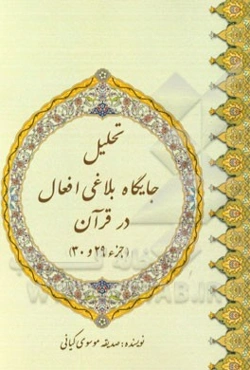 تحلیل
جایگاه بلاغی افعال
در قرآن
(جزء ۲۹ و ۳۰)
نویسنده: صدیقه موسوی کیانی